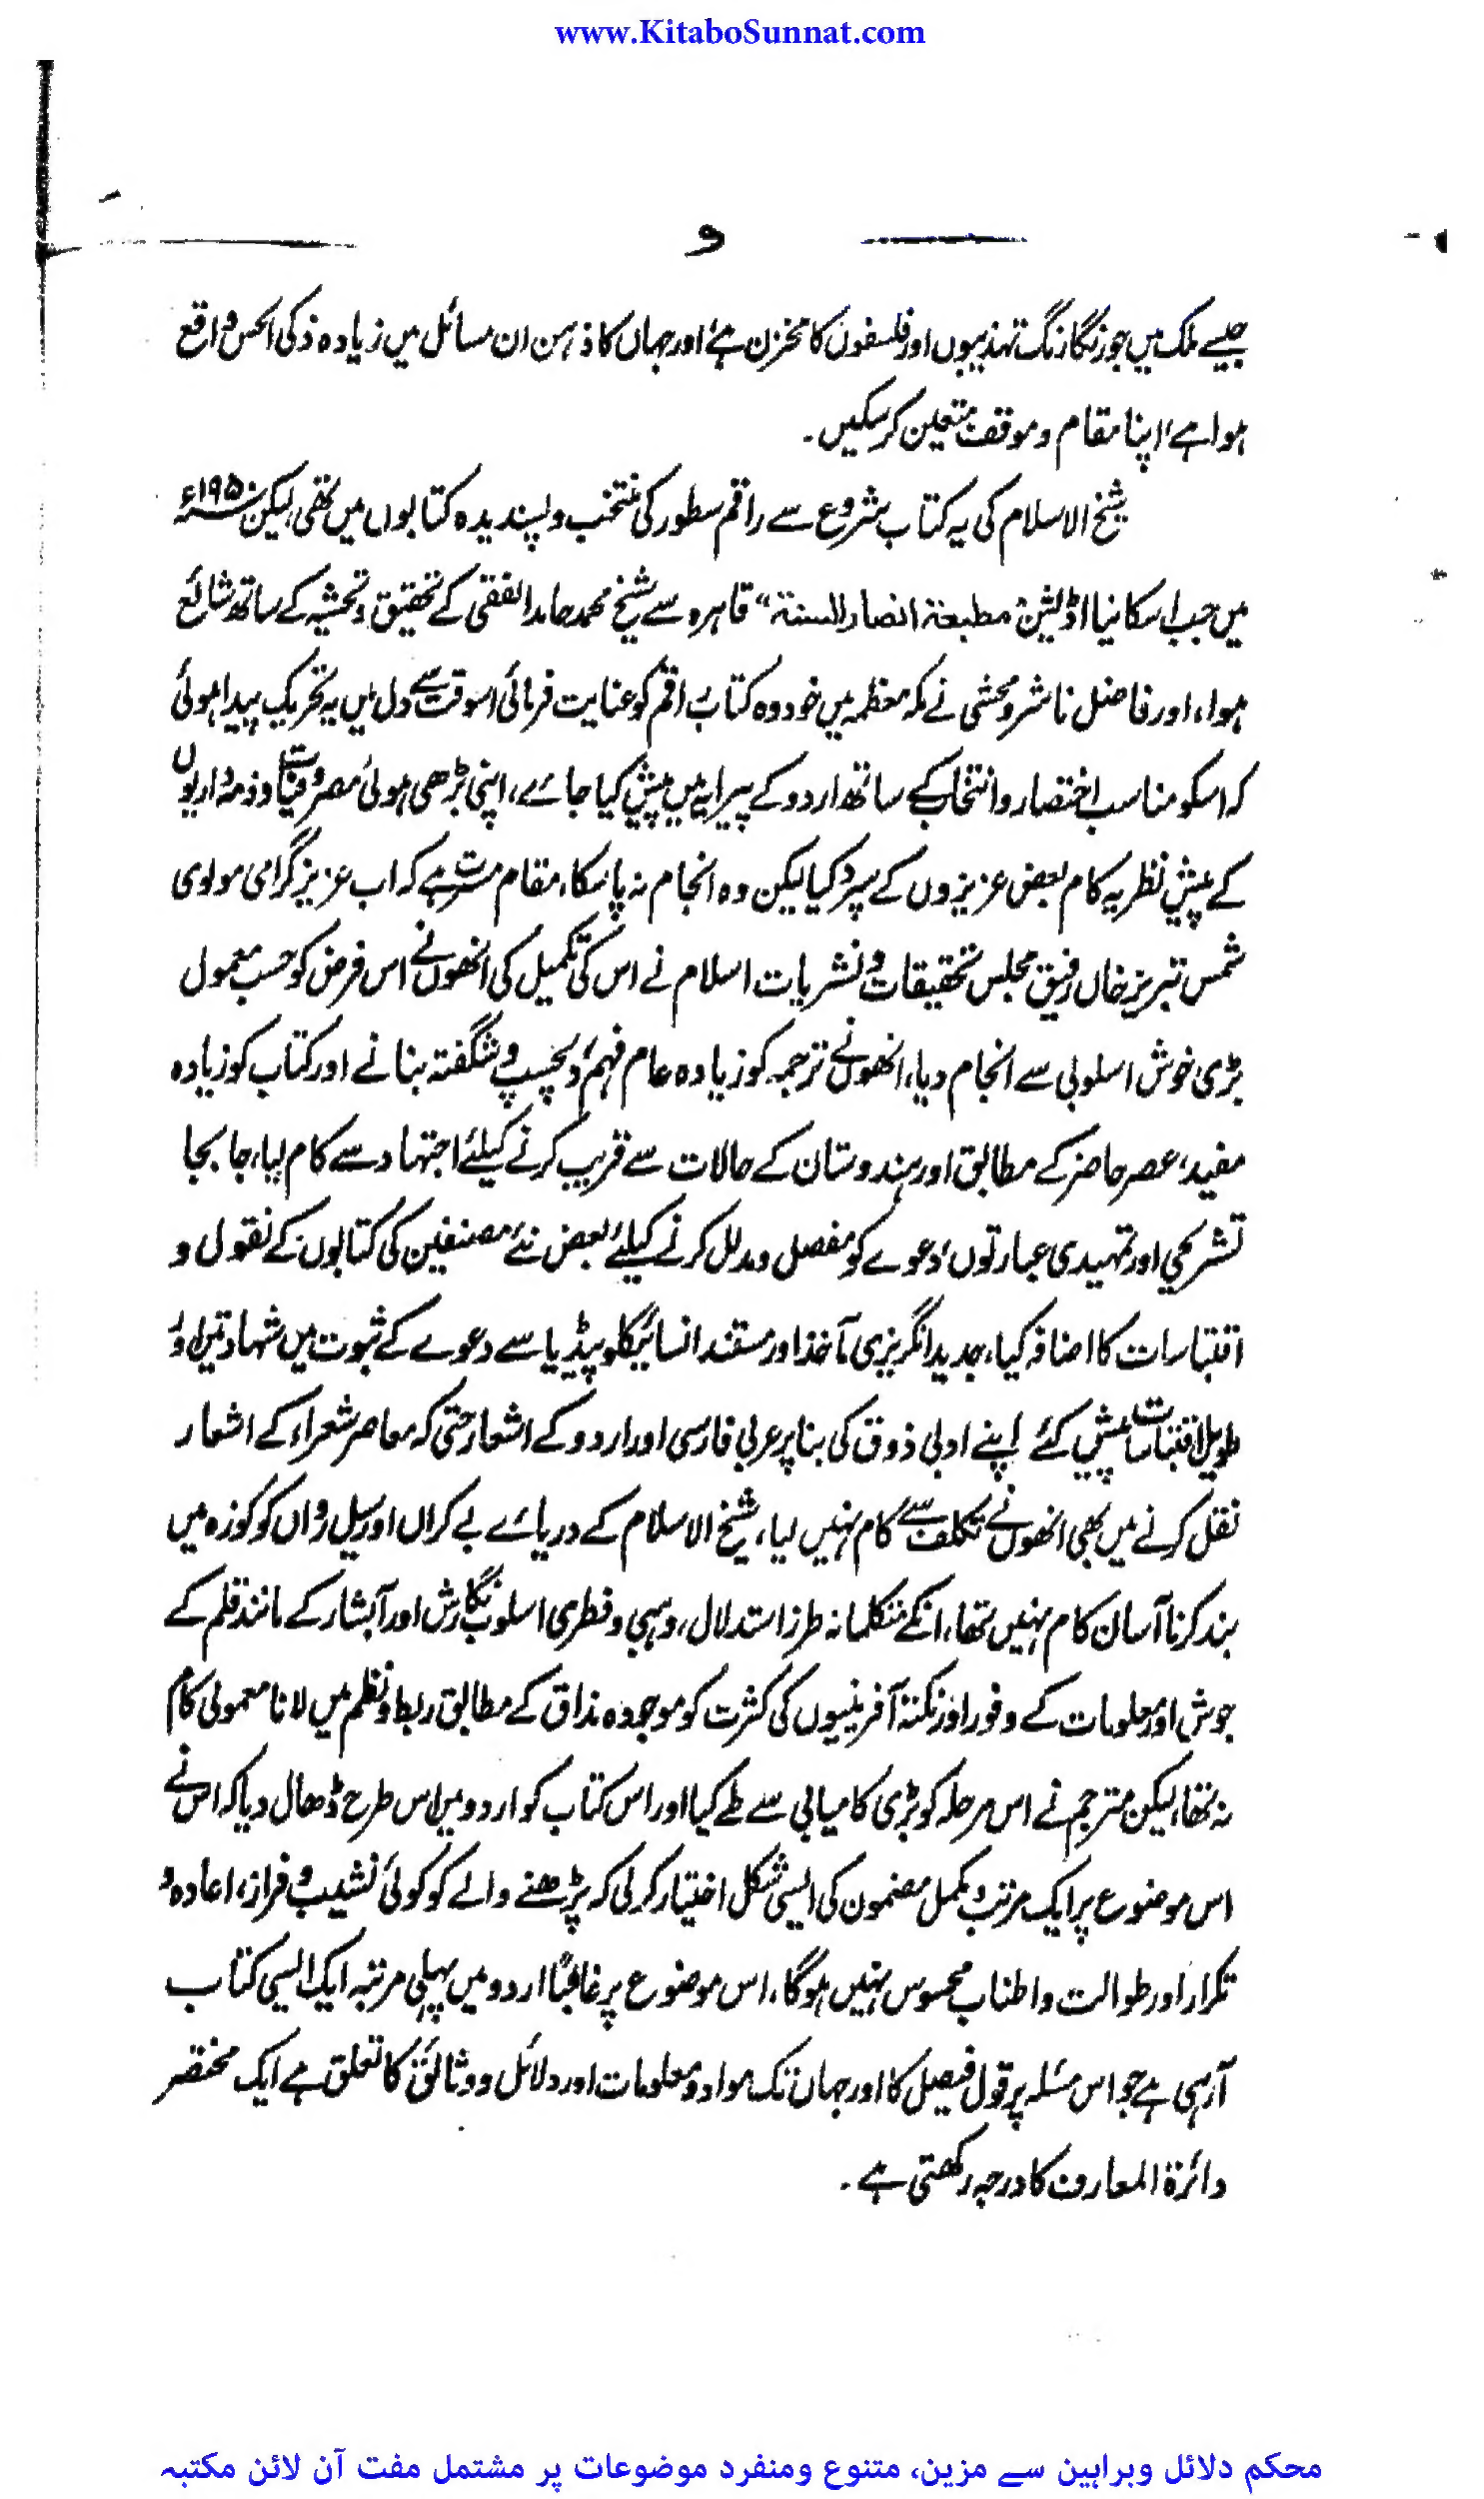 www.KitaboSunnat.com
و
جیسے ملک میں جو رنگا رنگ تہذیبوں اور فلسفوں کا مخزن ہے، اور جہاں کا ذہن ان مسائل میں زیادہ ذکی الحس واقع
ہوا ہے، اپنا مقام و موقف متعین کرسکیں۔
شیخ الاسلام کی یہ کتاب شروع سے راقم سطور کی منتخب و پسندیدہ کتابوں میں تھی، لیکن ۱۹۵۰ء
میں جب اسکا نیا اڈیشن "مطبعة انصار السنة" قاہرہ سے شیخ محمد حامد الفقی کے تحقیق و تحشیہ کے ساتھ شائع
ہوا، اور فاضل ناشر و محشی نے مکہ معظمہ میں خود وہ کتاب راقم کو عنایت فرمائی اسوقت سے دل میں یہ تحریک پیدا ہوئی
کہ اسکو مناسب اختصار و انتخاب کے ساتھ اردو کے پیرایہ میں پیش کیا جائے، اپنی بڑھی ہوئی مصروفیات و ذمہ داریوں
کے پیش نظر یہ کام بعض عزیزوں کے سپرد کیا لیکن وہ انجام نہ پاسکا، مقام مسرت ہے کہ اب عزیز گرامی مولوی
شمس تبریز خاں رفیق مجلس تحقیقات و نشریات اسلام نے اس کی تکمیل کی انھوں نے اس فرض کو حسب معمول
بڑی خوش اسلوبی سے انجام دیا، انھوں نے ترجمہ کو زیادہ عام فہم، دلچسپ و شگفتہ بنانے اور کتاب کو زیادہ
مفید، عصر حاضر کے مطابق اور ہندوستان کے حالات سے قریب کرنے کیلئے اجتہاد سے کام لیا، جا بجا
تشریحی اور تمہیدی عبارتوں، دعوے کو مفصل و مدلل کرنے کیلئے بعض نئے مصنفین کی کتابوں کے نقول و
اقتباسات کا اضافہ کیا، جدید انگریزی مآخذ اور مستند انسائیکلوپیڈیا سے دعوے کے ثبوت میں شہادتیں اور
طویل اقتباسات پیش کئے اپنے ادبی ذوق کی بنا پر عربی فارسی اور اردو کے اشعار حتیٰ کہ معاصر شعراء کے اشعار
نقل کرنے میں بھی انھوں نے تکلف سے کام نہیں لیا، شیخ الاسلام کے دریائے بے کراں اور سیل رواں کو کوزہ میں
بند کرنا آسان کام نہیں تھا، انکے متکلمانہ طرز استدلال، وہبی و فطری اسلوب نگارش اور آبشار کے مانند قلم کے
جوش اور معلومات کے وفور اور نکتہ آفرینیوں کی کثرت کو موجودہ مذاق کے مطابق ربط و نظم میں لانا معمولی کام
نہ تھا، لیکن مترجم نے اس مرحلہ کو بڑی کامیابی سے طے کیا اور اس کتاب کو اردو میں اس طرح ڈھال دیا کہ اس نے
اس موضوع پر ایک مرتب و مکمل مضمون کی ایسی شکل اختیار کرلی کہ پڑھنے والے کو کوئی نشیب و فراز، اعادہ و
تکرار اور طوالت و اطناب محسوس نہیں ہوگا، اس موضوع پر غالباً اردو میں پہلی مرتبہ ایک ایسی کتاب
آرہی ہے جو اس مسئلہ پر قول فیصل کا اور جہاں تک مواد و معلومات اور دلائل و وثائق کا تعلق ہے ایک مختصر
دائرة المعارف کا درجہ رکھتی ہے۔
محکم دلائل وبراہین سے مزین، متنوع ومنفرد موضوعات پر مشتمل مفت آن لائن مکتبہ